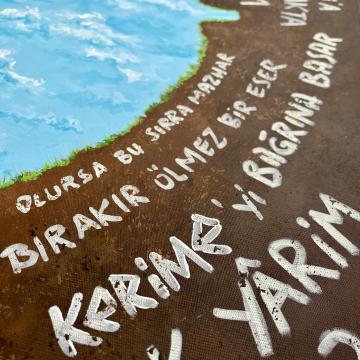 OLURSA BU SIRRA MAZHAR
BIRAKIR ÖLMEZ BİR ESER
KERİME'Yİ BAĞRINA BASAR
YÂRİM